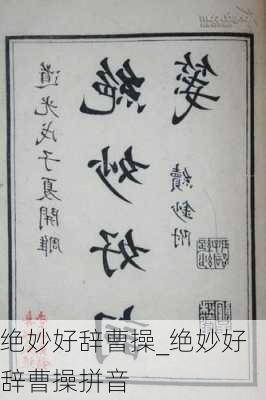 道光戊子夏開雕
絕妙好
箋
續鈔附
绝妙好辞曹操_绝妙好
辞曹操拼音